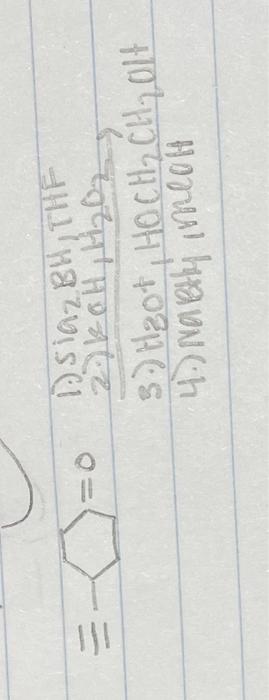 1.) Sia2BH, THF
2.) KOH, H2O2
=O
3.) H3O+, HOCH2CH2OH
4.) NaBH4, MeOH